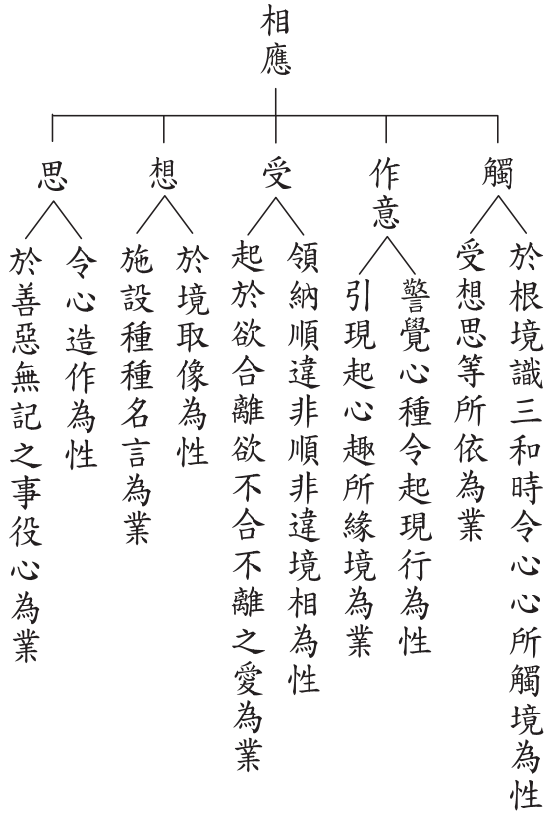 相應
觸
於根境識三和時令心心所觸境為性
受想思等所依為業
作意
警覺心種令起現行為性
引現起心趣所緣境為業
受
領納順違非順非違境相為性
起於欲合離欲不合不離之愛為業
想
於境取像為性
施設種種名言為業
思
令心造作為性
於善惡無記之事役心為業